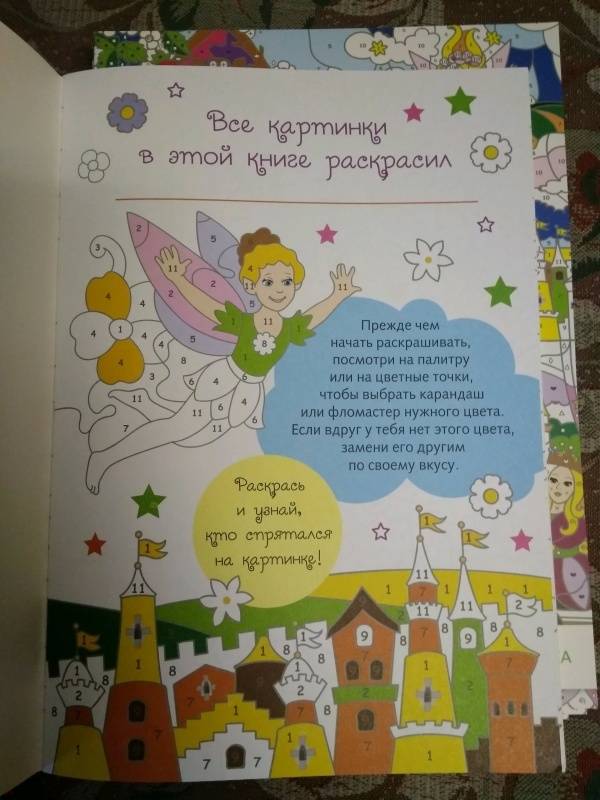 Все картинки
в этой книге раскрасил
Прежде чем
начать раскрашивать,
посмотри на палитру
или на цветные точки,
чтобы выбрать карандаш
или фломастер нужного цвета.
Если вдруг у тебя нет этого цвета,
замени его другим
по своему вкусу.
Раскрась
и узнай,
кто спрятался
на картинке!